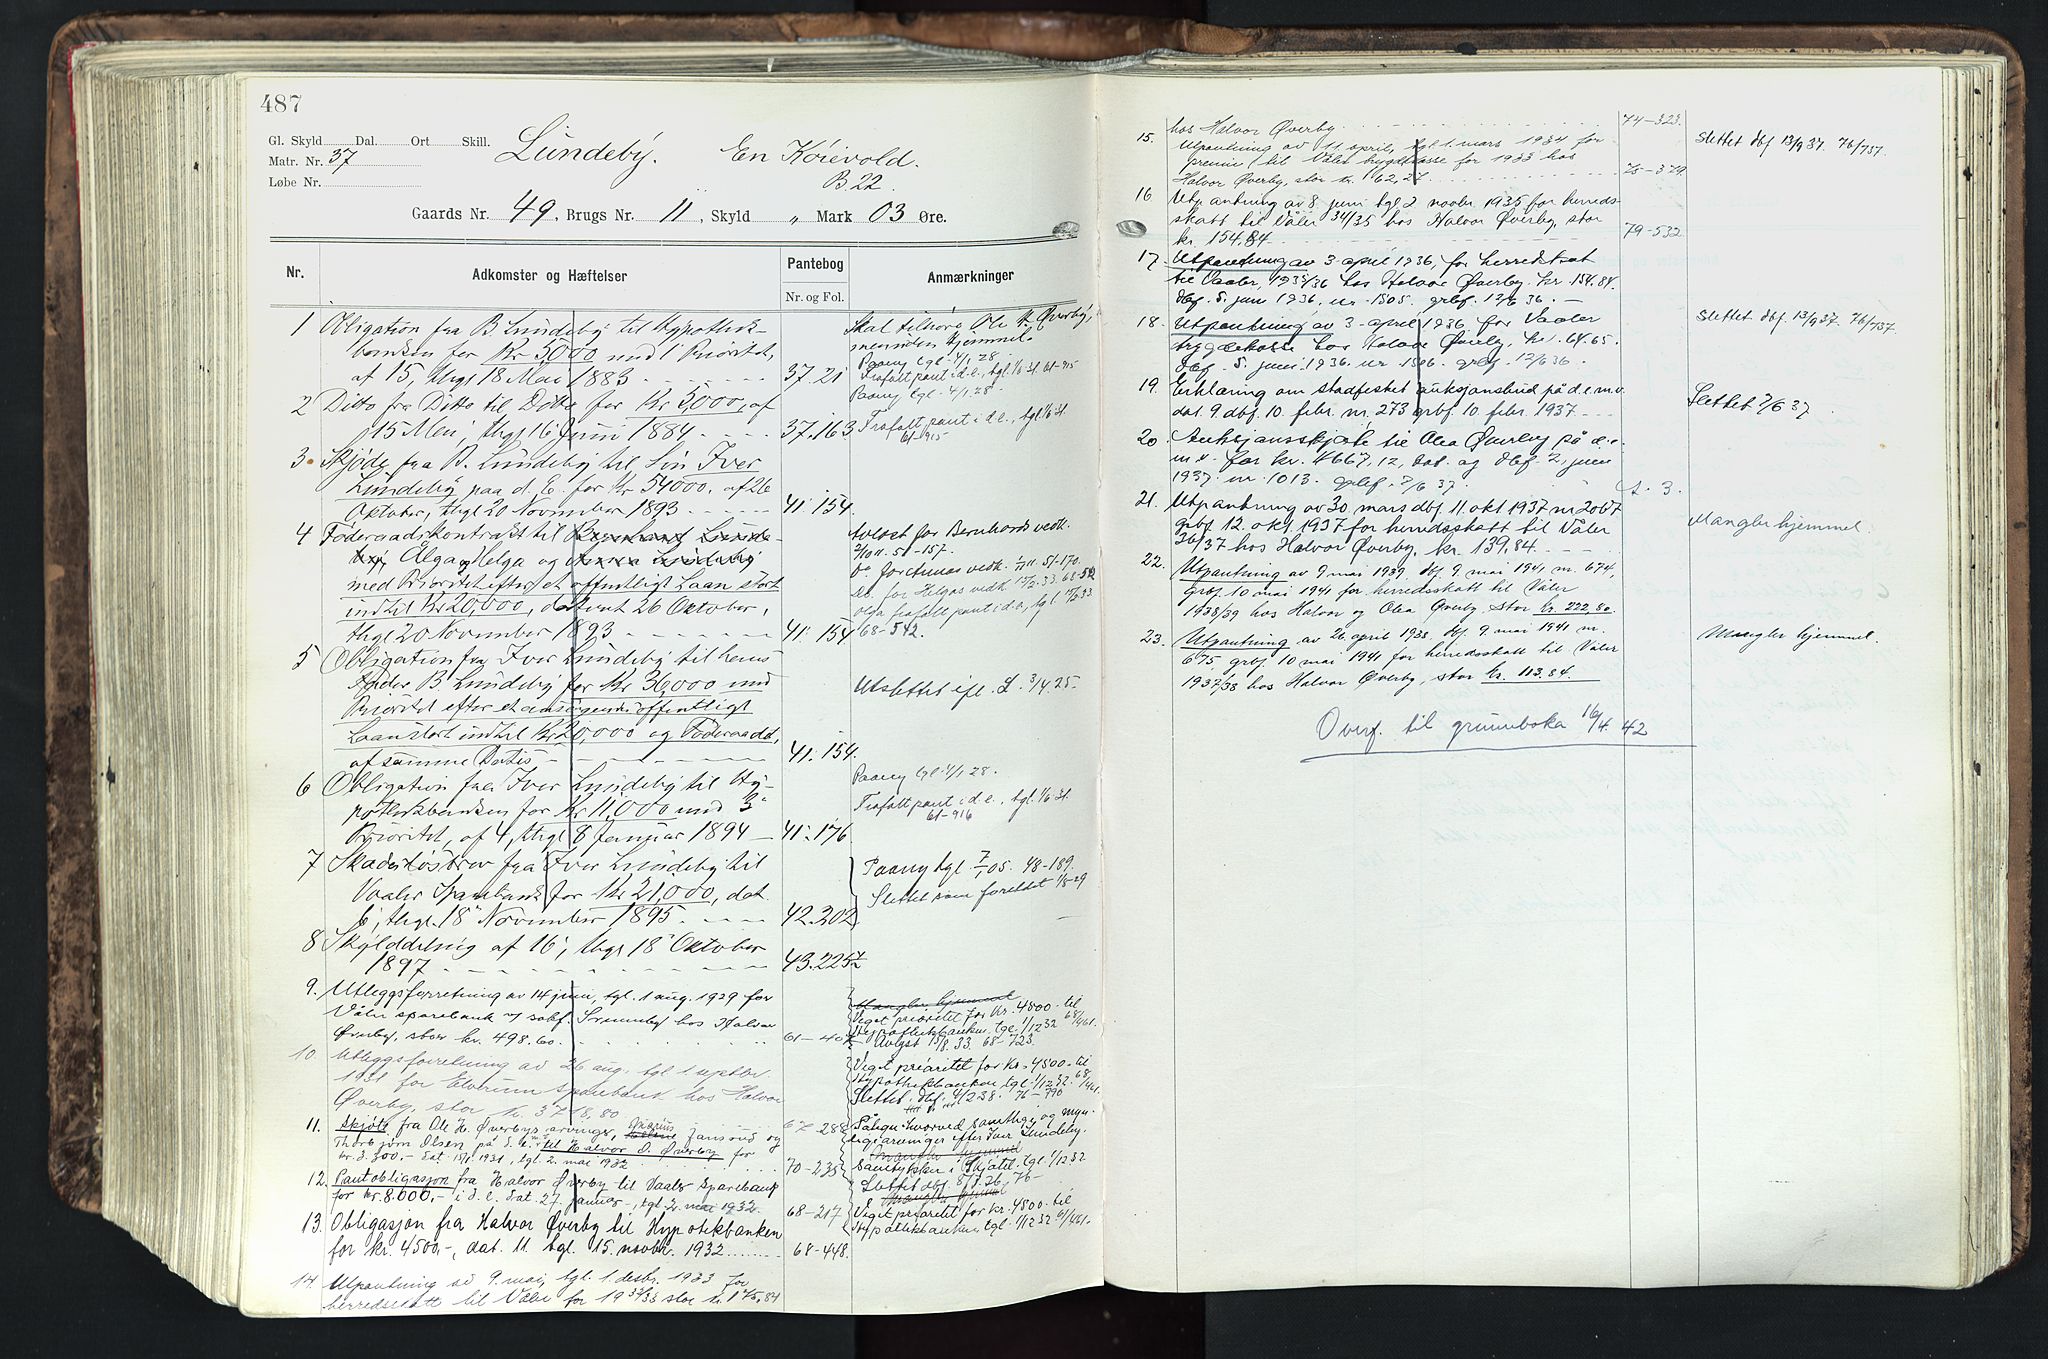 487
Gl. Skyld Dal. Ort Skill.
Matr. Nr. 37
Løbe Nr.
Lundeby. En Koievold.
B 22.
Gaards Nr. 49, Brugs Nr. 11, Skyld „ Mark 03 Øre.
Nr. Adkomster og Hæftelser Pantebog Anmærkninger
Nr. og Fol.
1 Obligation fra B. Lundeby til Hypothek-
banken for Kr 5000 med 1' Prioritet,
af 15, thgl 18 Mai 1883 37.21
Skal tilhøre Ole H. Øverby,
Paany tgl. 4/1 28.
Frafalt pant i d.e., tgl. 1/6 31. 61-915
2 Ditto fra Ditto til Ditto for Kr 5000, af
15 Mai, thgl 16 Juni 1884 37.163
Paany tgl. 4/1 28
Frafalt pant i d.e., tgl. 1/6 31.
61-915
3 Skjøde fra B. Lundeby til Søn Iver
Lundeby paa d. E. for Kr 54000, af 26
Oktober, thgl 20 November 1893 41.154
4 Føderaadskontrakt til Bernhard Lunde-
by, Olga, Helga og Lundeby
med Prioritet efter et offentligt Laan stort
indtil Kr 20,000, dateret 26 Oktober,
thgl 20 November 1893 41.154
Avløst for Bernhards vedk.
2/10 11. 51-157.
Do. for Helgas vedk. 15/2 33. 68-542
Olga frafalt pant i d.e., tgl.
68-542.
5 Obligation fra Iver Lundeby til hans
Fader B. Lundeby for Kr 36,000 med
Prioritet efter et offentligt
Laan stort indtil Kr 20,000 og Føderaadet,
af samme Datis 41.154.
Utslettet ifl. L. 3/4 25.
6 Obligation fra Iver Lundeby til Hy-
pothekbanken for Kr 11,000 med 3'
Prioritet, af 4, thgl 8 Januar 1894 41.176
Paany tgl. 4/1 28.
Frafalt pant i d.e., tgl. 1/6 31.
61-916
7 Skadesløsbrev fra Iver Lundeby til
Vaaler Sparebank for Kr 21,000, dat.
6, thgl. 18 November 1895. 42.202
Paany tgl. 7/1 05. 48-189.
Slettet som foreldet 1/8-29
8 Skylddeling af 16, thgl 18 Oktober
1897 43.225
9. Utleggsforretning av 14 juni, tgl. 1 aug. 1929 for
Våler sparebank hos Halvor
Øverby, stor kr. 498.60. 61-407
Mangler hjemmel
Veget prioritet for Kr. 4500.- til
Hypothekbanken, tgl. 1/12 32 68/461.
Avlyst 15/8. 33. 68-723.
10. Utleggsforretning av 26 aug. tgl. 1 septbr.
1931 for Elverum sparebank hos Halvor
Øverby, stor kr. 3718,80
Veget prioritet for Kr. 4500.- til
Hypothekbanken, tgl. 1/12 32. 68/461.
Slettet, dbf. 4/2 38. 76-790
11. Skjøte fra Ole H. Øverbys arvinger,
Thorbjørn Olsen på d.e. m.v. til Halvor O. Øverby for
kr. 3.300,- dat. 15/1 1931, tgl. 2. mai 1932 70-235
efter Iver Lundeby.
Mangler hjemmel
Samtykker i skjøtet. tgl. 1/12 32
12. Pantobligasjon fra Halvor Øverby til Vaaler Sparebank
for Kr. 8.000,- i d.e. dat. 27. januar, tgl. 2. mai 1932. 68-217
Slettet dbf. 8/7 36. 76-
Veget prioritet for kr. 4500.- til
Hypothekbanken, tgl. 1/12 32
13. Obligasjon fra Halvor Øverby til Hypotekbanken
for kr. 4500,-, dat. 11. tgl. 15. novbr. 1932 68-448.
14. Utpantning av 9. mai, tgl. 1. desbr. 1933 for
herredsskatt til Våler for 1932/33 stor kr. 145,84
hos Halvor Øverby 74-323.
15. Utpantning av 11 april, tgl. 1. mars 1934 for
premie til Våler trygdekasse for 1933 hos
Halvor Øverby, stor kr. 62,27 75-379.
Slettet dbf 13/9 37. 76/757.
16. Utpantning av 8 juni tgl 2 novbr 1935 for herreds-
skatt til Våler 34/35 hos Halvor Øverby, stor
kr. 154.84 79-532
17. Utpantning av 3 april 1936, for herredskat
til Vaaler, 1935/36 hos Halvor Øverby. kr. 154.84.
dbf. 5. juni 1936. nr. 1505. grbf. 12/6 36.
18. Utpantning av 3. april 1936 for Vaaler
trygdekasse hos Halvor Øverby, kr. 64.65.
dbf. 5. juni 1936. nr. 1506. grbf. 12/6 36.
Slettet dbf. 13/9 37. 76/757.
19. Erklæring om stadfestet auksjonsbud på d.e. m.v.
dat. 9. dbf. 10. febr. nr. 273 grbf. 10 febr. 1937.
Slettet 2/6 37
20. Auksjonsskjøte til Olea Øverby på d.e.
m.v. for kr. 4667,12, dat. og dbf. 2. juni
1937. nr. 1013. grbf. 2/6 37.
21. Utpantning av 30. mars dbf. 11. okt 1937 nr 2067
grbf. 12. okt. 1937 for herredsskatt til Våler
36/37 hos Halvor Øverby, kr. 139,84.
Mangler hjemmel.
22. Utpantning av 9 mai 1939. dbf. 9. mai 1941 nr. 674,
grbf. 10 mai 1941 for herredsskatt til Våler
1938/39 hos Halvor og Olea Øverby stor kr. 222,80
23. Utpantning av 26 april 1938. dbf. 9. mai 1941 nr.
675. grbf. 10 mai 1941 for herredsskatt til Våler
1937/38 hos Halvor Øverby, stor kr. 113.84.
Mangler hjemmel.
Overf. til grunnboka 16/4. 42